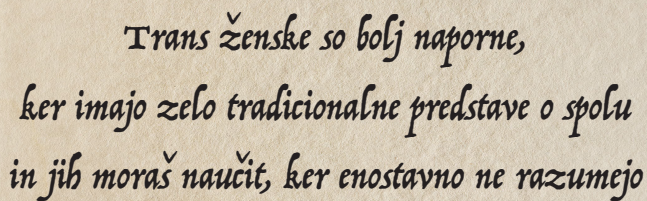 Trans ženske so bolj naporne,
ker imajo zelo tradicionalne predstave o spolu
in jih moraš naučit, ker enostavno ne razumejo